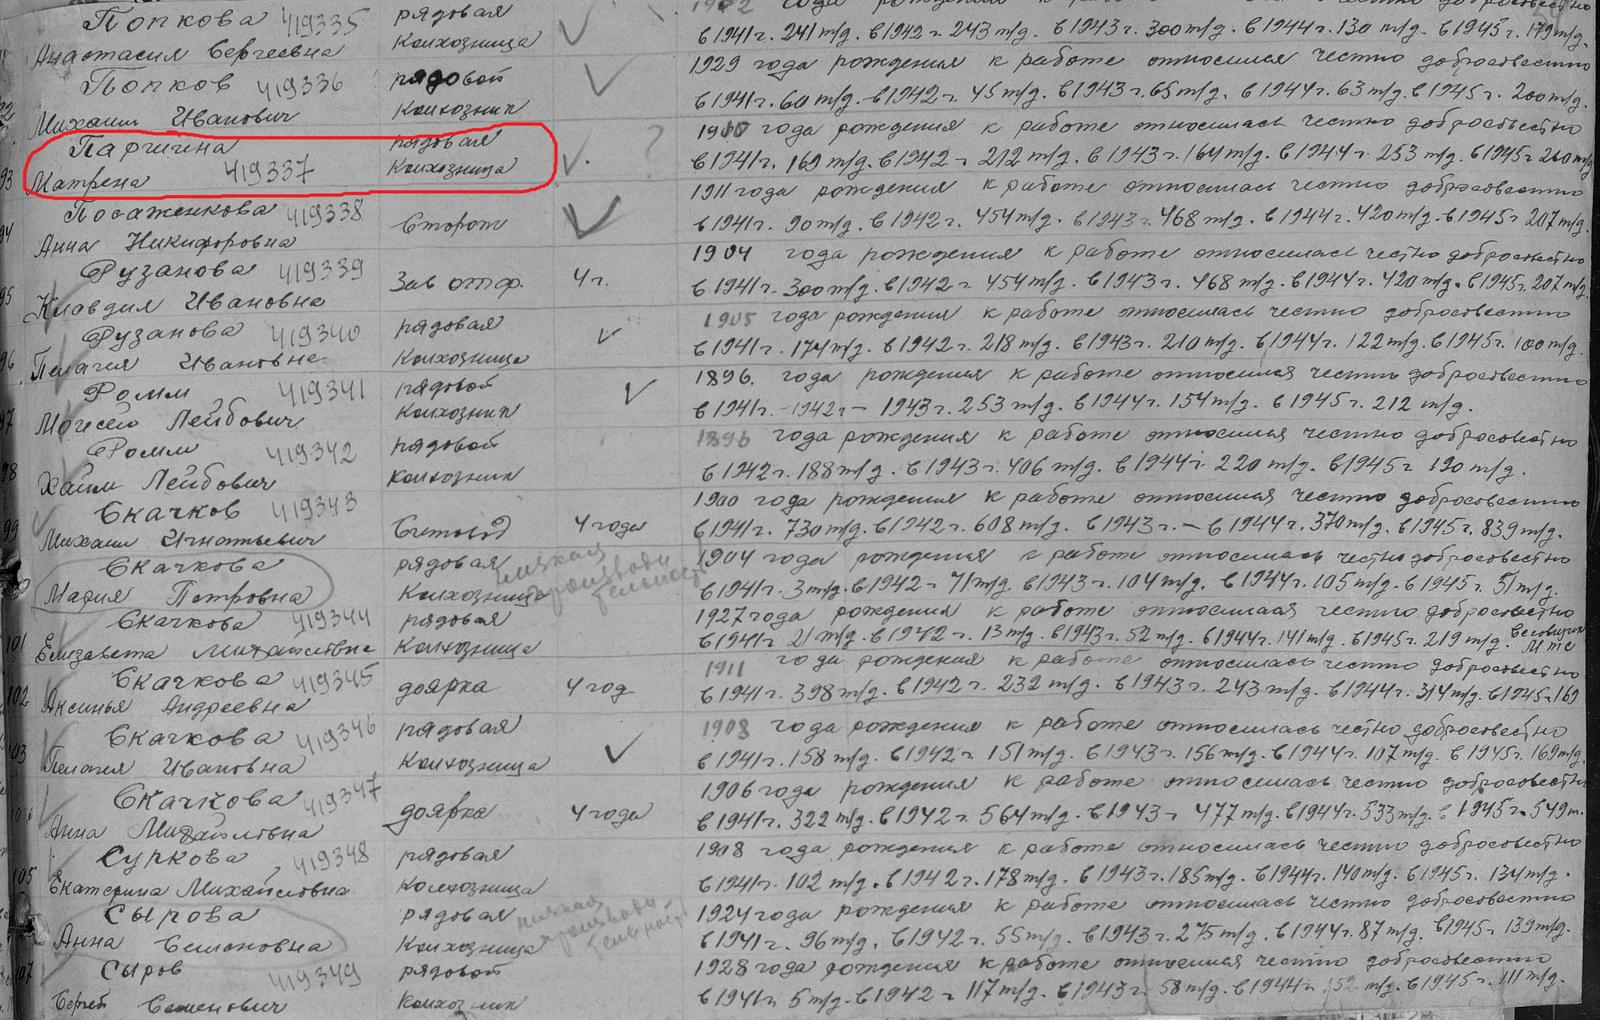 Попкова 419335 рядовая 1902 года рождения к работе относилась честно добросовестно
Анастасия Сергеевна колхозница в 1941 г. 241 т/д. в 1942 г. 243 т/д. в 1943 г. 300 т/д. в 1944 г. 130 т/д. в 1945 г. 179 т/д.
Попков 419336 рядовой 1929 года рождения к работе относился честно добросовестно
Михаил Иванович колхозник в 1941 г. 60 т/д. в 1942 г. 45 т/д. в 1943 г. 65 т/д. в 1944 г. 63 т/д. в 1945 г. 200 т/д.
Паргигна рядовая ? года рождения к работе относилась честно добросовестно
93 Матрена 419337 колхозница в 1941 г. 169 т/д. в 1942 г. 212 т/д. в 1943 г. 164 т/д. в 1944 г. 253 т/д. в 1945 г. 260 т/д
Посаженкова 419338 Сторож 1911 года рождения к работе относилась честно добросовестно
94 Анна Никифоровна в 1941 г. 90 т/д. в 1942 г. 454 т/д. в 1943 г. 468 т/д. в 1944 г. 420 т/д. в 1945 г. 207 т/д.
Рузанова 419339 Зав отф. 4 г. 1904 года рождения к работе относилась честно добросовестно
95 Клавдия Ивановна в 1941 г. 300 т/д. в 1942 г. 454 т/д. в 1943 г. 468 т/д. в 1944 г. 420 т/д. в 1945 г. 207 т/д.
Рузанова 419340 рядовая 1905 года рождения к работе относилась честно добросовестно
96 Пелагея Ивановна колхозница в 1941 г. 174 т/д. в 1942 г. 218 т/д. в 1943 г. 210 т/д. в 1944 г. 122 т/д. в 1945 г. 100 т/д.
Ромм 419341 рядовой 1896. года рождения к работе относился честно добросовестно
97 Моисей Лейбович колхозник в 1941 г. - 1942 г - 1943 г. 253 т/д. в 1944 г. 154 т/д. в 1945 г. 212 т/д.
Ромм 419342 рядовой 1896 года рождения к работе относился честно добросовестно
98 Хаим Лейбович колхозник в 1942 г. 188 т/д. в 1943 г. 406 т/д. в 1944 г. 220 т/д. в 1945 г 190 т/д.
Скачков 419343 Счетовод 4 года 1900 года рождения к работе относился честно добросовестно
99 Михаил Игнатьевич в 1941 г. 730 т/д. в 1942 г. 608 т/д. в 1943 г. - в 1944 г. 370 т/д. в 1945 г. 839 т/д.
Скачкова рядовая низкая 1904 года рождения к работе относилась честно добросовестно
Мария Петровна колхозница производительность в 1941 г. 3 т/д. в 1942 г 71 т/д. в 1943 г. 104 т/д. в 1944 г. 105 т/д. в 1945 г. 51 т/д.
Скачкова 419344 рядовая 1927 года рождения к работе относилась честно добросовестно
101 Елизавета Михайловна колхозница в 1941 г. 21 т/д. в 1942 г. 13 т/д. в 1943 г. 52 т/д. в 1944 г. 141 т/д. в 1945 г. 219 т/д. весовщик МТС
Скачкова 419345 доярка 4 год 1911 года рождения к работе относилась честно добросовестно
102 Аксинья Андреевна в 1941 г. 398 т/д. в 1942 г. 232 т/д. в 1943 г. 243 т/д. в 1944 г. 314 т/д. в 1945 г. 169
Скачкова 419346 рядовая 1908 года рождения к работе относилась честно добросовестно
103 Пелагея Ивановна колхозница в 1941 г. 158 т/д. в 1942 г. 151 т/д. в 1943 г. 156 т/д. в 1944 г. 107 т/д. в 1945 г. 169 т/д.
Скачкова 419347 доярка 4 года 1906 года рождения к работе относилась честно добросовестно
Анна Михайловна в 1941 г. 322 т/д. в 1942 г. 564 т/д. в 1943 г 477 т/д. в 1944 г. 533 т/д. в 1945 г. 549 т.
Суркова 419348 рядовая 1908 года рождения к работе относилась честно добросовестно
105 Екатерина Михайловна колхозница в 1941 г. 102 т/д. в 1942 г. 178 т/д. в 1943 г. 185 т/д. в 1944 г. 140 т/д. в 1945 г. 134 т/д.
Сырова рядовая низкая 1924 года рождения к работе относилась честно добросовестно
Анна Семеновна колхозница производительность в 1941 г. 96 т/д. в 1942 г. 55 т/д. в 1943 г. 275 т/д. в 1944 г. 87 т/д. в 1945 г. 139 т/д.
107 Сыров 419349 рядовой 1928 года рождения к работе относился честно добросовестно
Сергей Семенович колхозник в 1941 г. 5 т/д. в 1942 г 117 т/д. в 1943 г. 58 т/д. в 1944 г. 152 т/д. в 1945 г. 111 т/д.